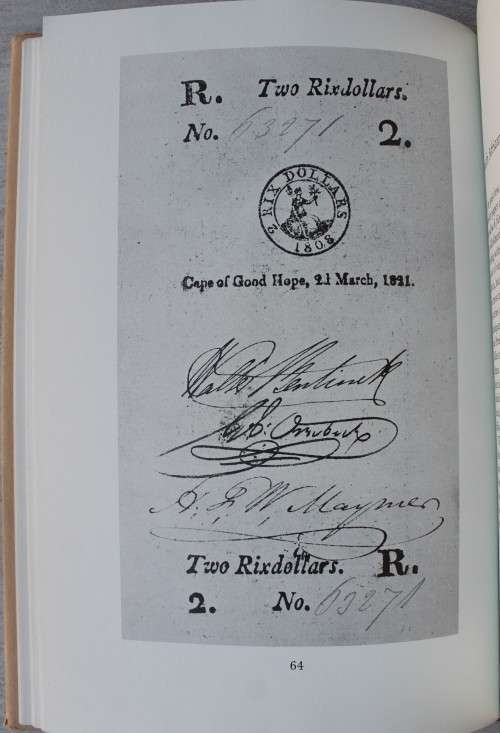 R. Two Rixdollars.
No. 63271 2.
2 RIX DOLLARS
1808
Cape of Good Hope, 21 March, 1821.
Walt. Bentinck
A. F. W. Maynier
Two Rixdollars. R.
2. No. 63271
64